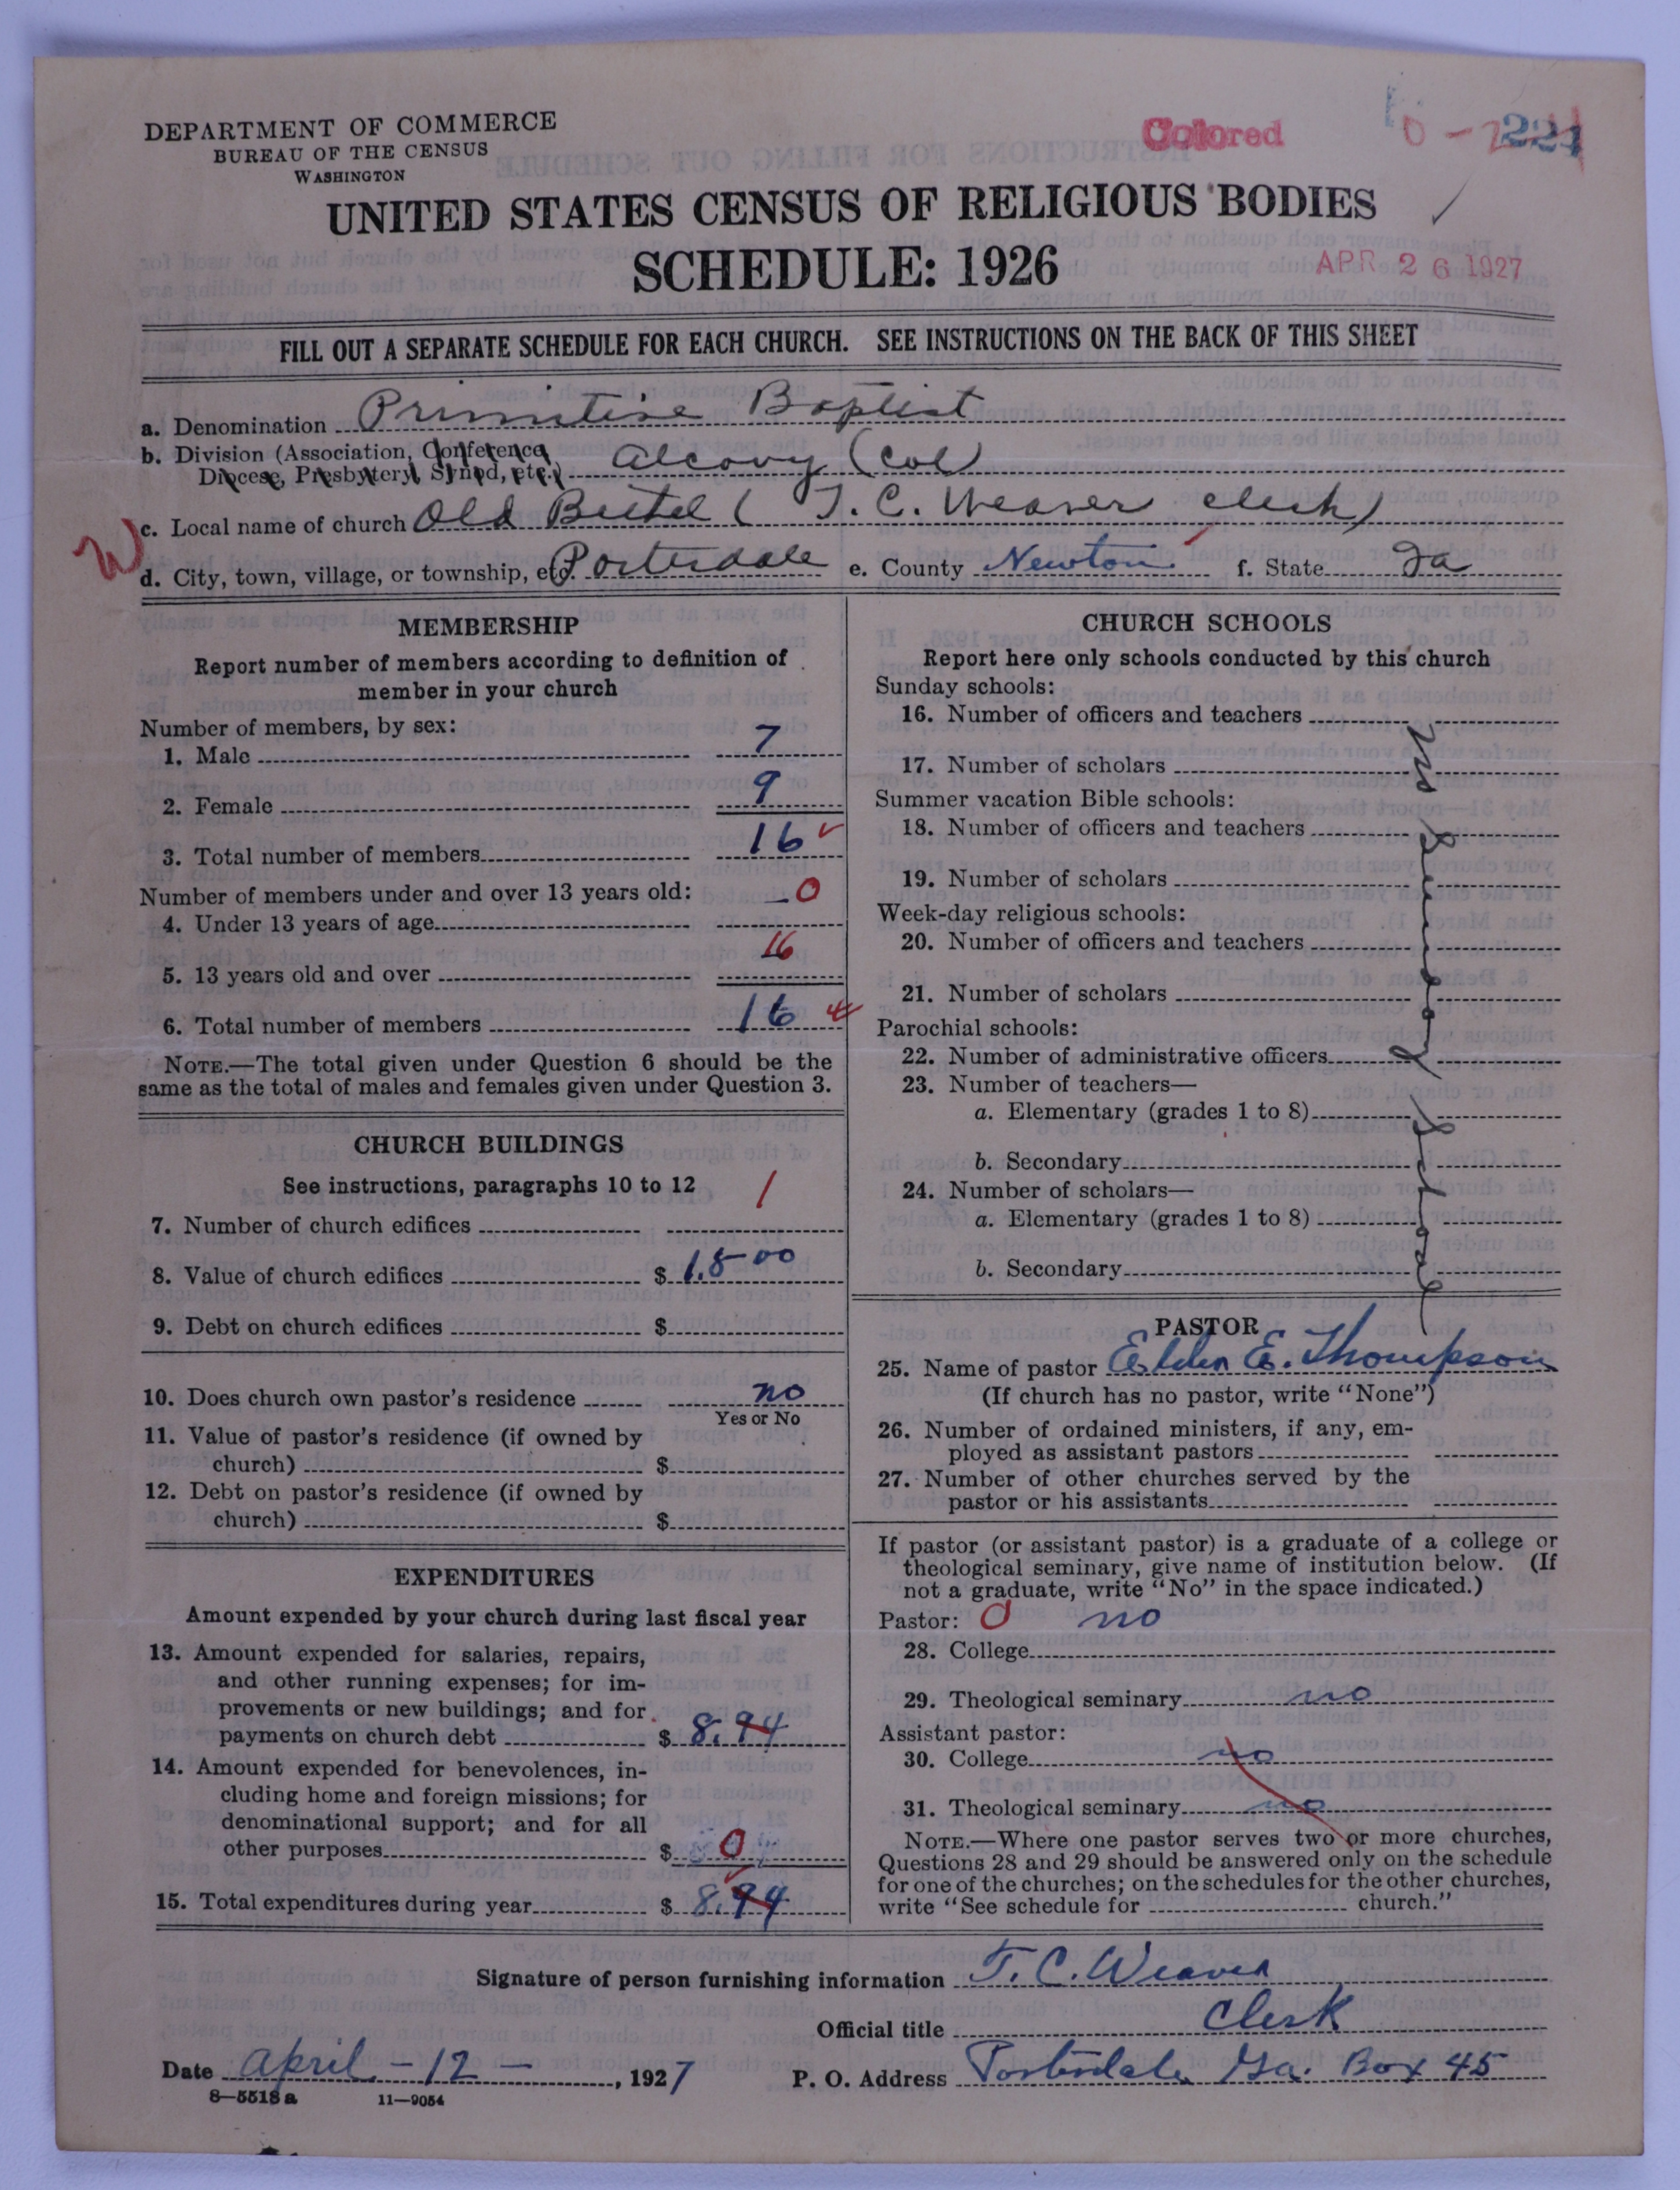 DEPARTMENT OF COMMERCE
BUREAU OF THE CENSUS
WASHINGTON
Colored
UNITED STATES CENSUS OF RELIGIOUS BODIES
SCHEDULE: 1926
APR 26 1927
FILL OUT A SEPARATE SCHEDULE FOR EACH CHURCH. SEE INSTRUCTIONS ON THE BACK OF THIS SHEET
a. Denomination Primitive Baptist
b. Division (Association, Conference, Diocese, Presbytery, Synod, etc.) Alcovy (Col)
c. Local name of church Old Bethel ( T. C. Weaver clerk)
d. City, town, village, or township, etc. Porterdale e. County Newton f. State Ga
MEMBERSHIP
Report number of members according to definition of
member in your church
Number of members, by sex:
1. Male 7
2. Female 9
3. Total number of members 16
Number of members under and over 13 years old:
4. Under 13 years of age 0
5. 13 years old and over 16
6. Total number of members 16
NOTE.—The total given under Question 6 should be the
same as the total of males and females given under Question 3.
CHURCH BUILDINGS
See instructions, paragraphs 10 to 12
7. Number of church edifices 1
8. Value of church edifices $ 1.500
9. Debt on church edifices $
10. Does church own pastor's residence no
Yes or No
11. Value of pastor's residence (if owned by
church) $
12. Debt on pastor's residence (if owned by
church) $
EXPENDITURES
Amount expended by your church during last fiscal year
13. Amount expended for salaries, repairs,
and other running expenses; for im-
provements or new buildings; and for
payments on church debt $ 8.94
14. Amount expended for benevolences, in-
cluding home and foreign missions; for
denominational support; and for all
other purposes $ 0
15. Total expenditures during year $ 8.94
CHURCH SCHOOLS
Report here only schools conducted by this church
Sunday schools:
16. Number of officers and teachers
17. Number of scholars
Summer vacation Bible schools:
18. Number of officers and teachers
19. Number of scholars
Week-day religious schools:
20. Number of officers and teachers
21. Number of scholars
Parochial schools:
22. Number of administrative officers
23. Number of teachers—
a. Elementary (grades 1 to 8)
b. Secondary
24. Number of scholars—
a. Elementary (grades 1 to 8)
b. Secondary
PASTOR
25. Name of pastor Elder E. Thompson
(If church has no pastor, write "None")
26. Number of ordained ministers, if any, em-
ployed as assistant pastors
27. Number of other churches served by the
pastor or his assistants
If pastor (or assistant pastor) is a graduate of a college or
theological seminary, give name of institution below. (If
not a graduate, write "No" in the space indicated.)
Pastor: 0 no
28. College
29. Theological seminary no
Assistant pastor:
30. College no
31. Theological seminary no
NOTE.—Where one pastor serves two or more churches,
Questions 28 and 29 should be answered only on the schedule
for one of the churches; on the schedules for the other churches,
write "See schedule for church."
Signature of person furnishing information T. C. Weaver
Official title Clerk
Date April - 12 - , 1927 P. O. Address Porterdale Ga. Box 45
8—5518 a 11—9054